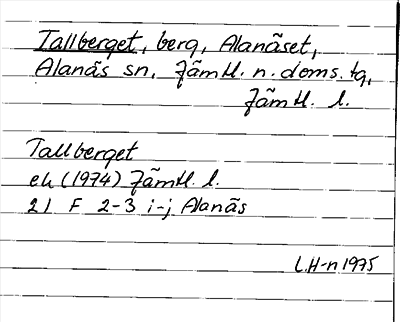 Tallberget, berg, Alanäset,
Alanäs sn, Jämtl. n. doms. tg,
Jämtl. l.
Tallberget
ek (1974) Jämtl. l.
21 F 2-3 i-j Alanäs
L.H-n 1975